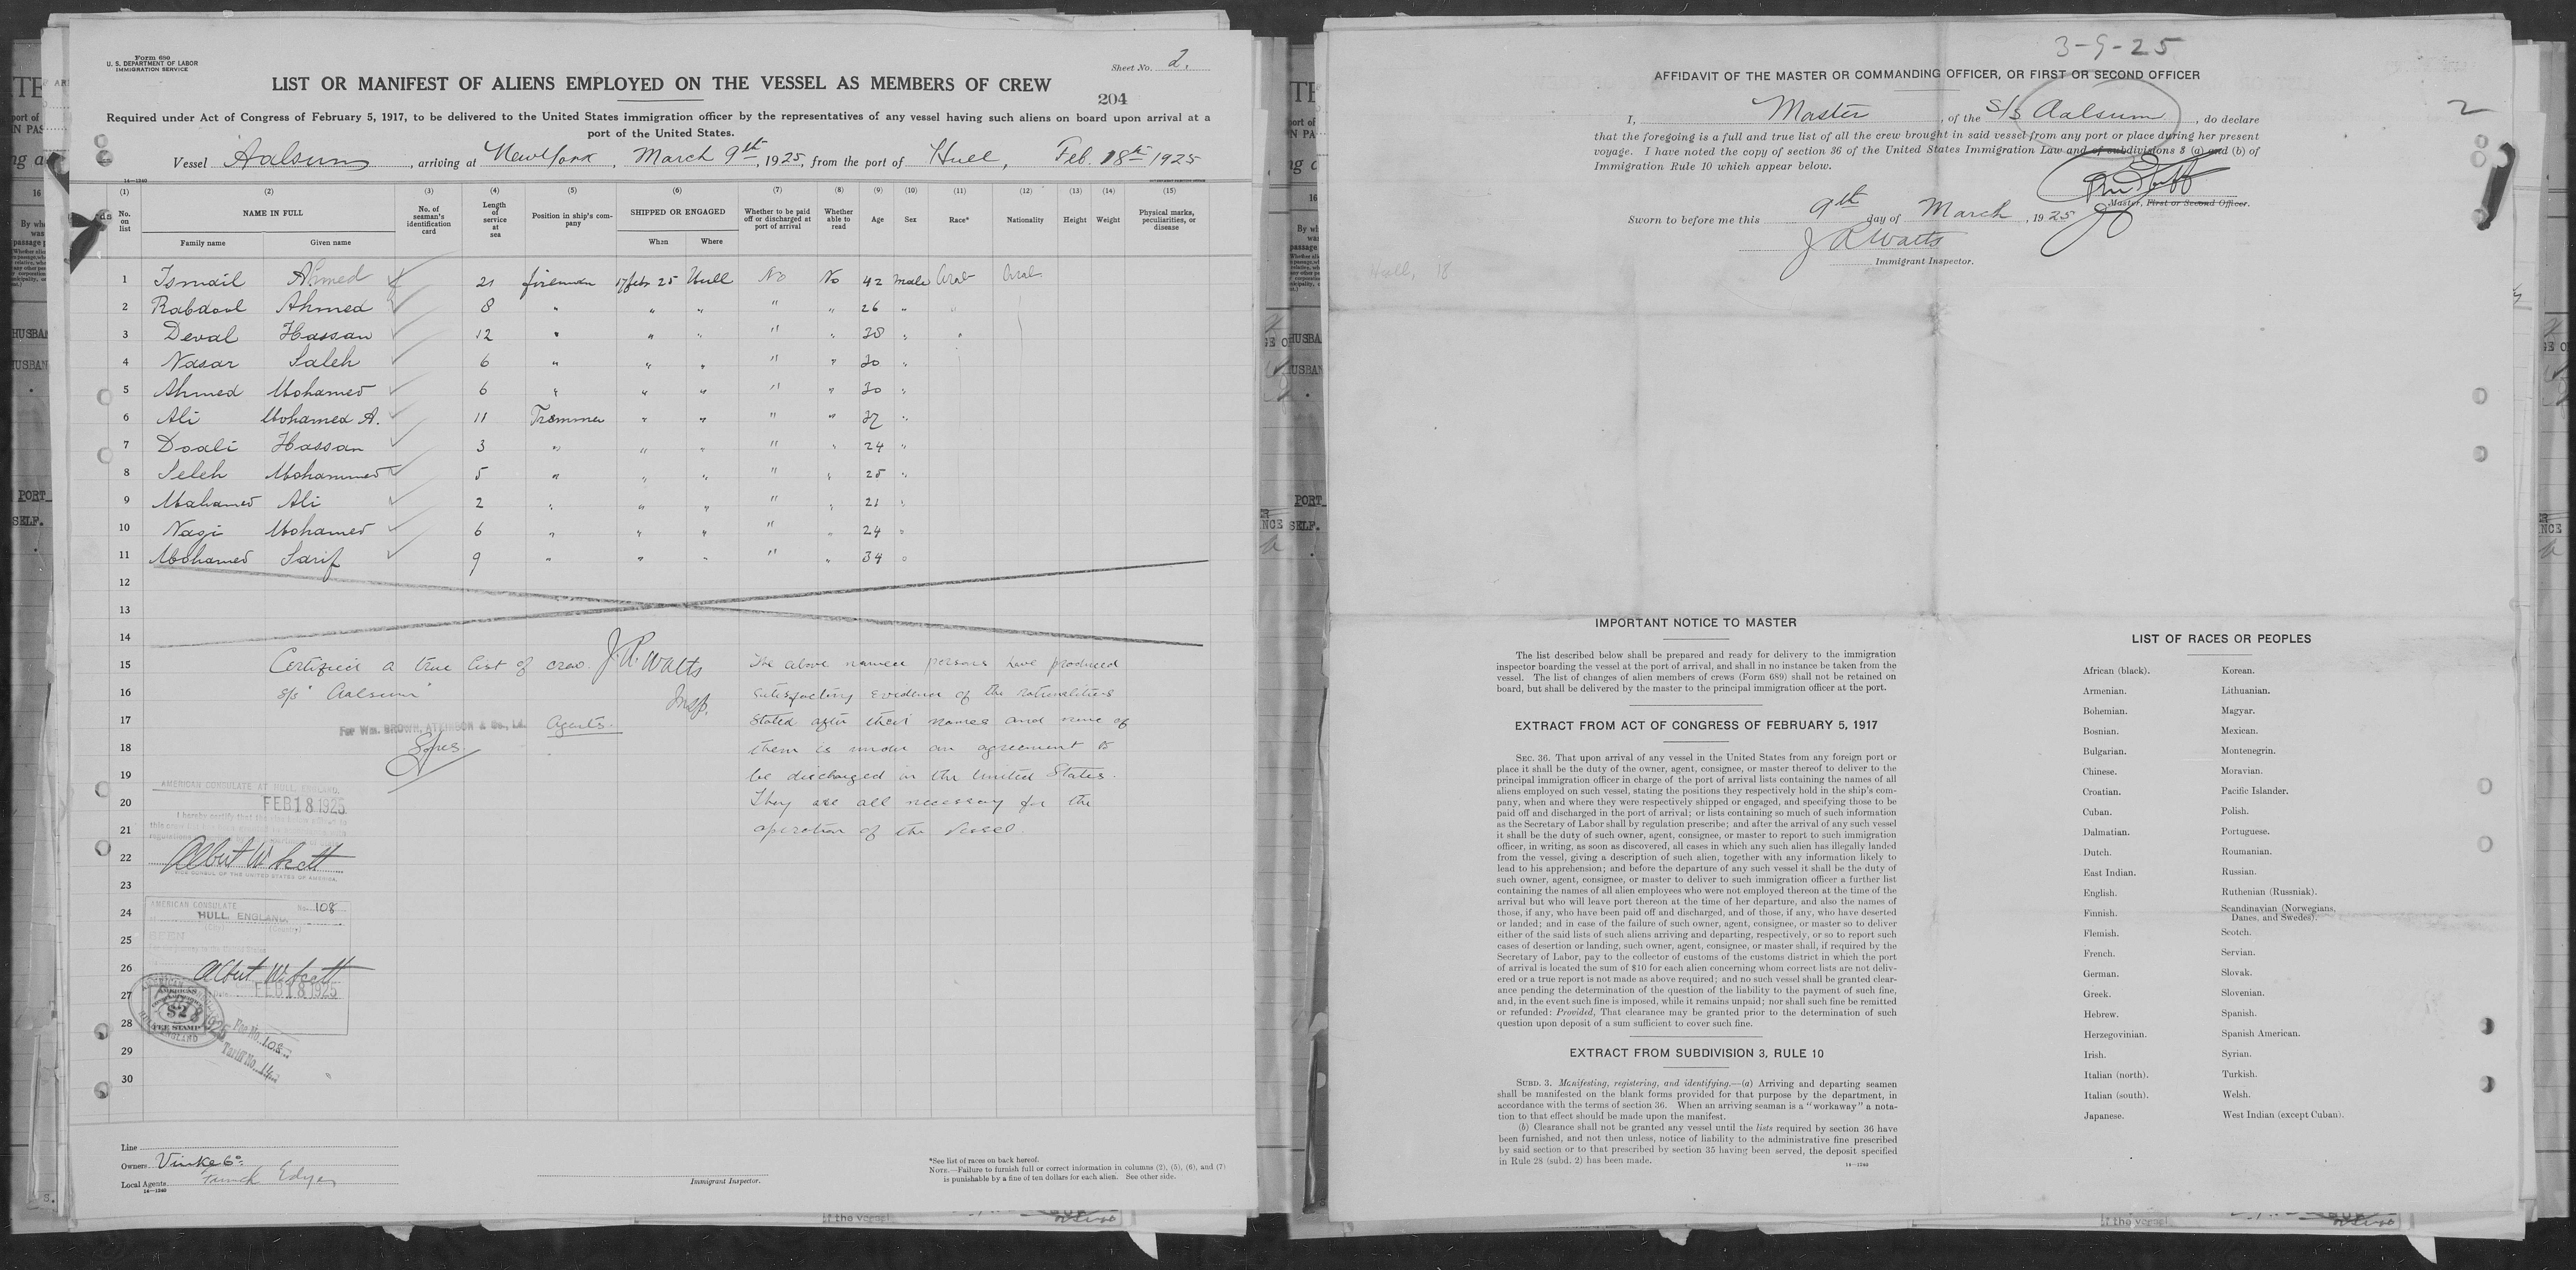 Form 680
U. S. DEPARTMENT OF LABOR
IMMIGRATION SERVICE
Sheet No. 2.
LIST OR MANIFEST OF ALIENS EMPLOYED ON THE VESSEL AS MEMBERS OF CREW
204
Required under Act of Congress of February 5, 1917, to be delivered to the United States immigration officer by the representatives of any vessel having such aliens on board upon arrival at a
port of the United States.
Vessel Aalsum, arriving at New York, March 9th, 1925, from the port of Hull, Feb. 18th 1925
14—1240
(1) (2) (3) (4) (5) (6) (7) (8) (9) (10) (11) (12) (13) (14) (15)
No. on list NAME IN FULL No. of seaman's identification card Length of service at sea Position in ship's company SHIPPED OR ENGAGED Whether to be paid off or discharged at port of arrival Whether able to read Age Sex Race* Nationality Height Weight Physical marks, peculiarities, or disease
Family name Given name When Where
1 Ismail Ahmed 21 fireman 17 febr 25 Hull No No 42 male Arab Arab
2 Rabdool Ahmed 8 " " " " " 26 "
3 Deval Hassan 12 " " " " " 38 " "
4 Nasar Saleh 6 " " " " " 30 "
5 Ahmed Mohamed 6 " " " " " 30 "
6 Ali Mohamed A. 11 Tremmer " " " " 32 "
7 Doali Hassan 3 " " " " " 24 "
8 Seleh Mohammed 5 " " " " " 25 "
9 Mahamed Ali 2 " " " " " 21 "
10 Nagi Mohamed 6 " " " " " 24 "
11 Mohamed Sarif 9 " " " " " 34 "
12
13
14
15 Certified a true list of crew. J. R. Watts The above named persons have produced
16 S/S "Aalsum" Insp. satisfactory evidence of the nationalities
17 For Wm. BROWN, ATKINSON & Co., Ld. Agents. stated after their names and none of
18 them is under an agreement to
19 be discharged in the United States.
20 They are all necessary for the
21 operation of the vessel.
AMERICAN CONSULATE AT HULL, ENGLAND,
FEB 18 1925
22 Albert W Scott
VICE CONSUL OF THE UNITED STATES OF AMERICA.
23
AMERICAN CONSULATE No. 108
24 HULL, ENGLAND,
(City) (Country)
25 SEEN
26 Albert W. Scott
Date FEB 18 1925
27 $2
FEE STAMP
28 Fee No. 108
29 Tariff No. 14
30
Line
Owners Vinke Co.
Local Agents Funch Edye
14—1240
Immigrant Inspector.
*See list of races on back hereof.
NOTE.—Failure to furnish full or correct information in columns (2), (5), (6), and (7)
is punishable by a fine of ten dollars for each alien. See other side.
3-9-25
AFFIDAVIT OF THE MASTER OR COMMANDING OFFICER, OR FIRST OR SECOND OFFICER
2
I, Master, of the S/S Aalsum, do declare
that the foregoing is a full and true list of all the crew brought in said vessel from any port or place during her present
voyage. I have noted the copy of section 36 of the United States Immigration Law and of subdivisions 3 (a) and (b) of
Immigration Rule 10 which appear below.
Master, First or Second Officer.
Sworn to before me this 9th day of March, 1925
J R Watts
Immigrant Inspector.
Hull, 18
IMPORTANT NOTICE TO MASTER
The list described below shall be prepared and ready for delivery to the immigration
inspector boarding the vessel at the port of arrival, and shall in no instance be taken from the
vessel. The list of changes of alien members of crews (Form 689) shall not be retained on
board, but shall be delivered by the master to the principal immigration officer at the port.
EXTRACT FROM ACT OF CONGRESS OF FEBRUARY 5, 1917
SEC. 36. That upon arrival of any vessel in the United States from any foreign port or
place it shall be the duty of the owner, agent, consignee, or master thereof to deliver to the
principal immigration officer in charge of the port of arrival lists containing the names of all
aliens employed on such vessel, stating the positions they respectively hold in the ship's com-
pany, when and where they were respectively shipped or engaged, and specifying those to be
paid off and discharged in the port of arrival; or lists containing so much of such information
as the Secretary of Labor shall by regulation prescribe; and after the arrival of any such vessel
it shall be the duty of such owner, agent, consignee, or master to report to such immigration
officer, in writing, as soon as discovered, all cases in which any such alien has illegally landed
from the vessel, giving a description of such alien, together with any information likely to
lead to his apprehension; and before the departure of any such vessel it shall be the duty of
such owner, agent, consignee, or master to deliver to such immigration officer a further list
containing the names of all alien employees who were not employed thereon at the time of the
arrival but who will leave port thereon at the time of her departure, and also the names of
those, if any, who have been paid off and discharged, and of those, if any, who have deserted
or landed; and in case of the failure of such owner, agent, consignee, or master so to deliver
either of the said lists of such aliens arriving and departing, respectively, or so to report such
cases of desertion or landing, such owner, agent, consignee, or master shall, if required by the
Secretary of Labor, pay to the collector of customs of the customs district in which the port
of arrival is located the sum of $10 for each alien concerning whom correct lists are not deliv-
ered or a true report is not made as above required; and no such vessel shall be granted clear-
ance pending the determination of the question of the liability to the payment of such fine,
and, in the event such fine is imposed, while it remains unpaid; nor shall such fine be remitted
or refunded: Provided, That clearance may be granted prior to the determination of such
question upon deposit of a sum sufficient to cover such fine.
EXTRACT FROM SUBDIVISION 3, RULE 10
SUBD. 3. Manifesting, registering, and identifying.—(a) Arriving and departing seamen
shall be manifested on the blank forms provided for that purpose by the department, in
accordance with the terms of section 36. When an arriving seaman is a "workaway" a nota-
tion to that effect should be made upon the manifest.
(b) Clearance shall not be granted any vessel until the lists required by section 36 have
been furnished, and not then unless, notice of liability to the administrative fine prescribed
by said section or to that prescribed by section 35 having been served, the deposit specified
in Rule 28 (subd. 2) has been made.
14—1240
LIST OF RACES OR PEOPLES
African (black). Korean.
Armenian. Lithuanian.
Bohemian. Magyar.
Bosnian. Mexican.
Bulgarian. Montenegrin.
Chinese. Moravian.
Croatian. Pacific Islander.
Cuban. Polish.
Dalmatian. Portuguese.
Dutch. Roumanian.
East Indian. Russian.
English. Ruthenian (Russniak).
Finnish. Scandinavian (Norwegians,
Danes, and Swedes).
Flemish. Scotch.
French. Servian.
German. Slovak.
Greek. Slovenian.
Hebrew. Spanish.
Herzegovinian. Spanish American.
Irish. Syrian.
Italian (north). Turkish.
Italian (south). Welsh.
Japanese. West Indian (except Cuban).